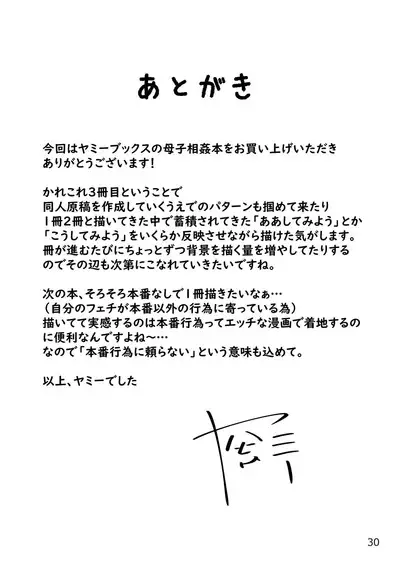 あとがき
今回はヤミーブックスの母子相姦本をお買い上げいただき
ありがとうございます!
かれこれ3冊目ということで
同人原稿を作成していくうえでのパターンも掴めて来たり
1冊2冊と描いてきた中で蓄積されてきた「ああしてみよう」とか
「こうしてみよう」をいくらか反映させながら描けた気がします。
冊が進むたびにちょっとずつ背景を描く量を増やしてたりする
のでその辺も次第にこなれていきたいですね。
次の本、そろそろ本番なしで1冊描きたいなぁ…
(自分のフェチが本番以外の行為に寄っている為)
描いてて実感するのは本番行為ってエッチな漫画で着地するの
に便利なんですよね〜…
なので「本番行為に頼らない」という意味も込めて。
以上、ヤミーでした
30